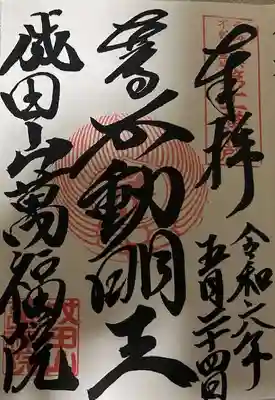 奉拝
令和六年
五月二十四日
尊不動明王
成田山萬福院